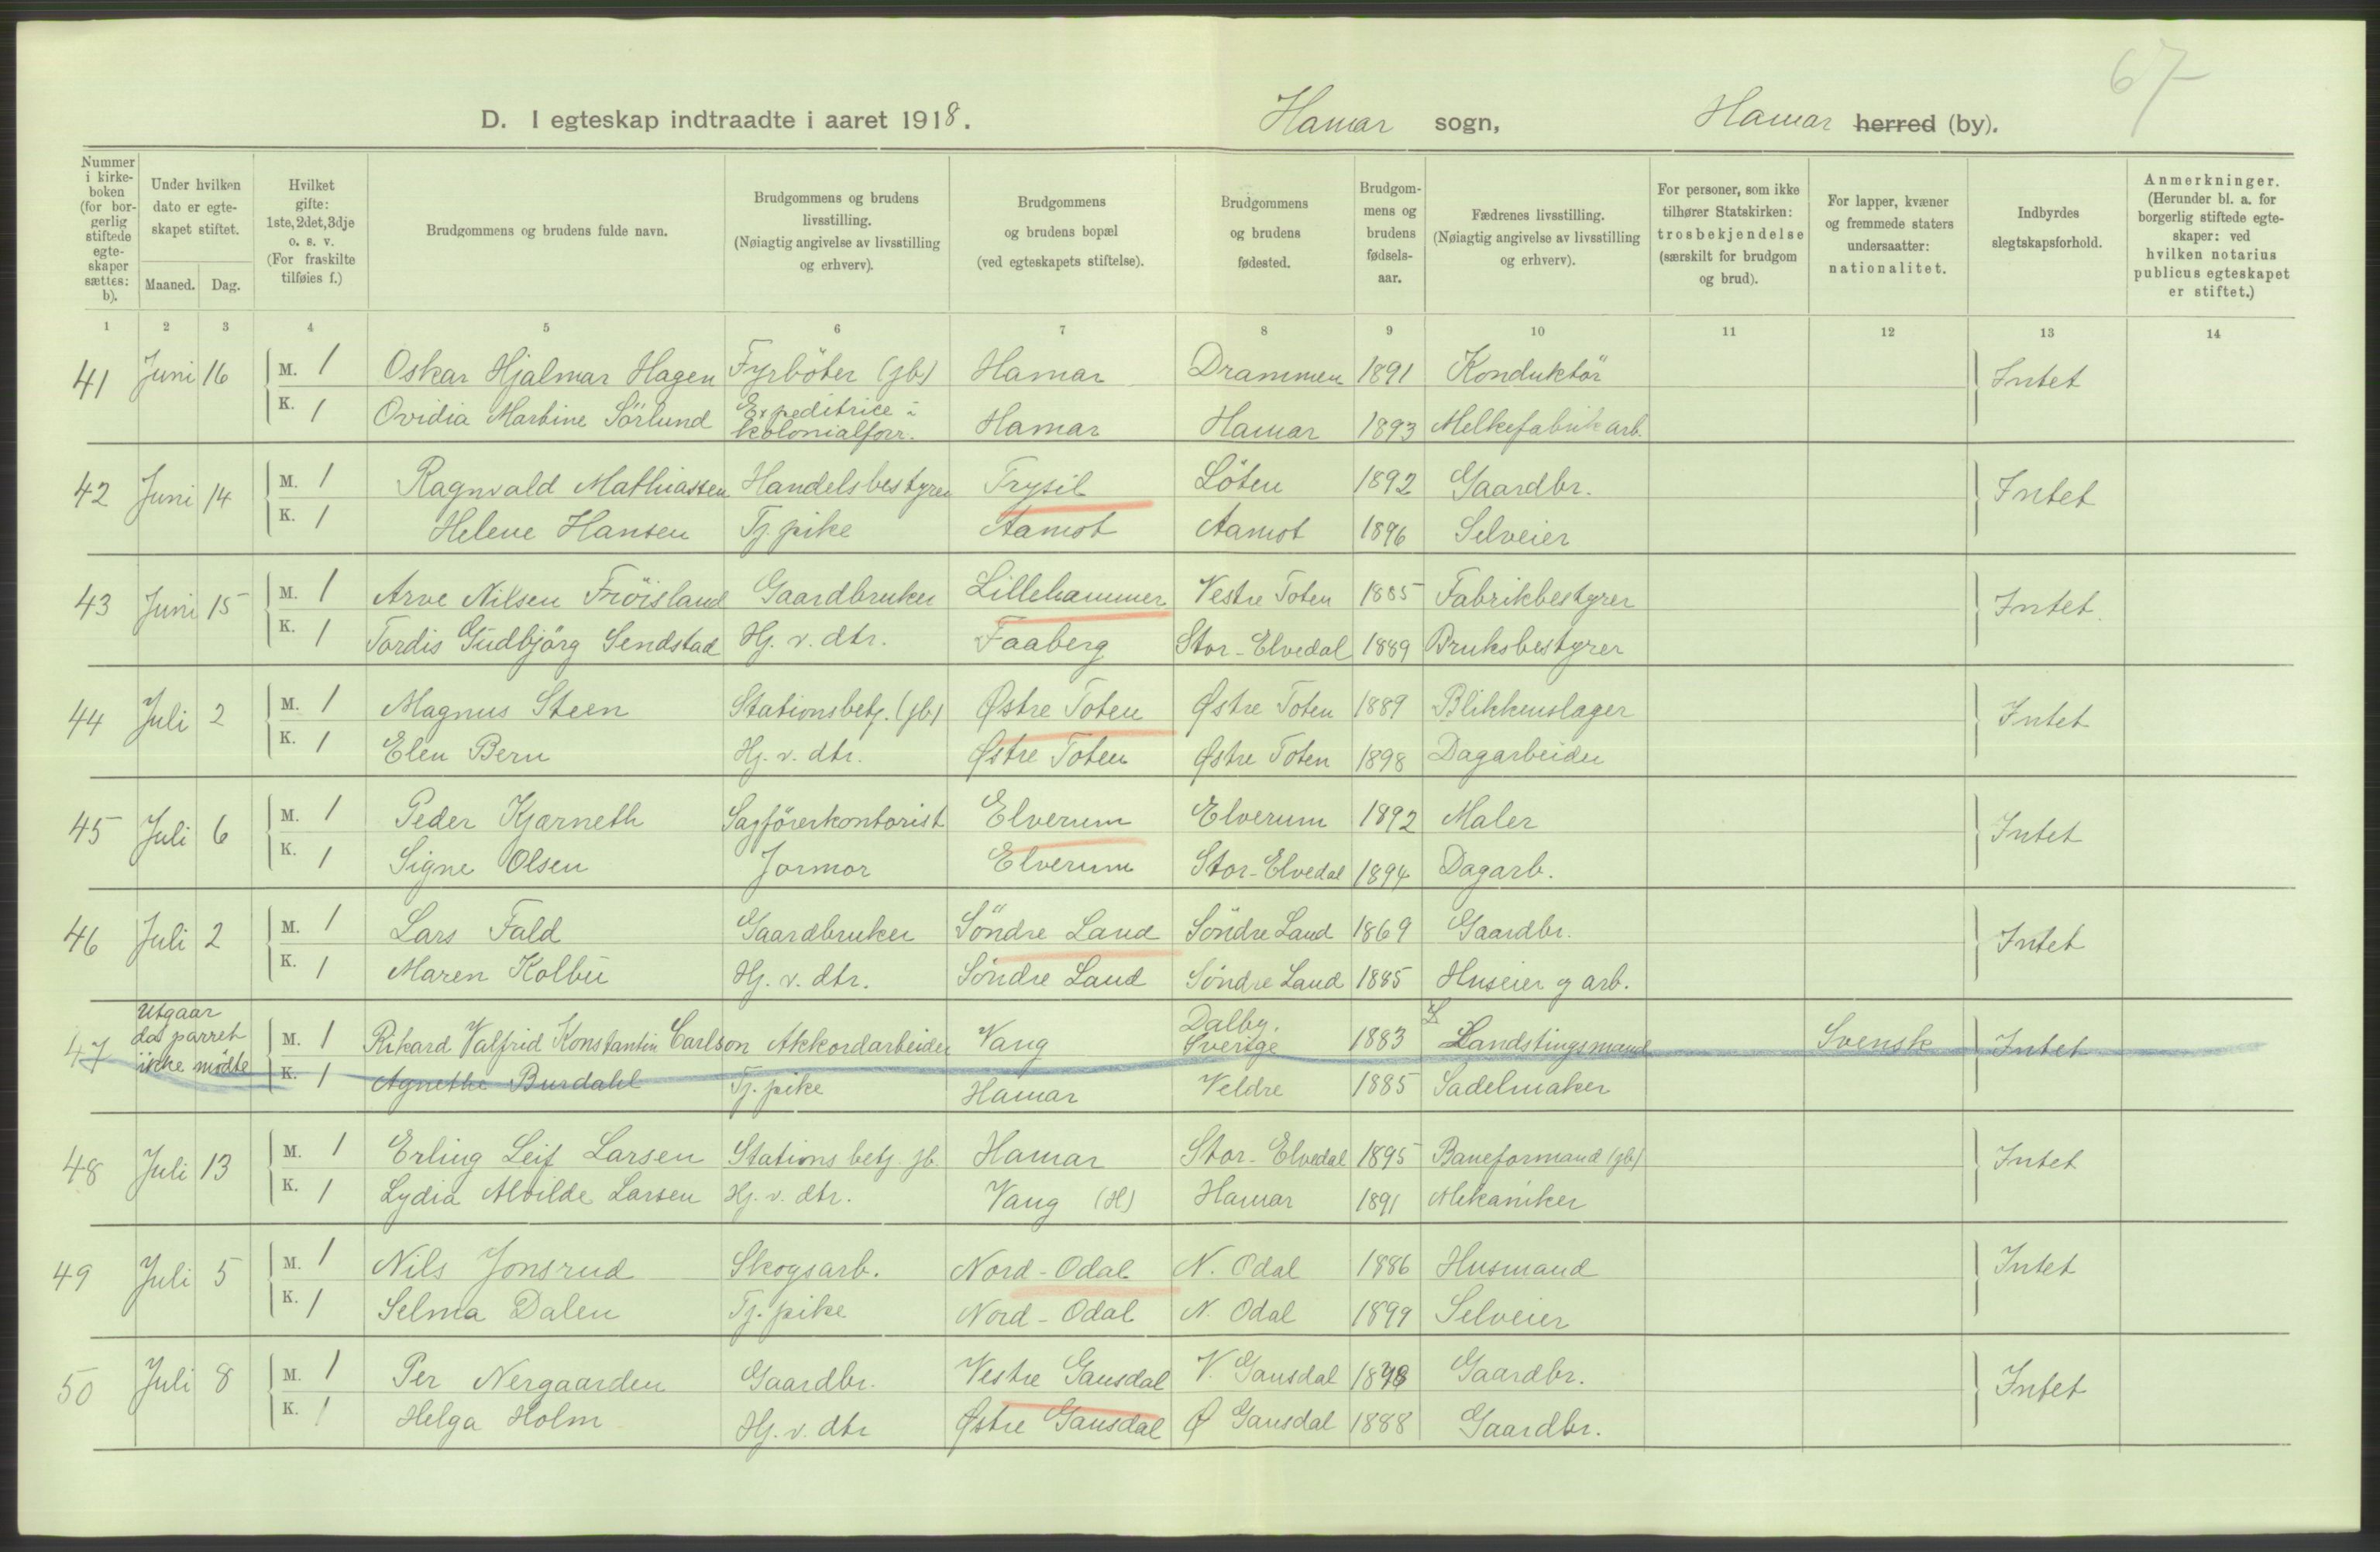 67
D. I egteskap indtraadte i aaret 1918. Hamar sogn, Hamar herred (by).
Nummer i kirke-boken (for bor-gerlig stiftede egte-skaper sættes: b).
Under hvilken dato er egte-skapet stiftet.
Maaned. Dag.
Hvilket gifte: 1ste, 2det, 3dje o. s. v. (For fraskilte tilføies f.)
Brudgommens og brudens fulde navn.
Brudgommens og brudens livsstilling. (Nøiagtig angivelse av livsstilling og erhverv).
Brudgommens og brudens bopæl (ved egteskapets stiftelse).
Brudgommens og brudens fødested.
Brudgom-mens og brudens fødsels-aar.
Fædrenes livsstilling. (Nøiagtig angivelse av livsstilling og erhverv).
For personer, som ikke tilhører Statskirken: trosbekjendelse (særskilt for brudgom og brud).
For lapper, kvæner og fremmede staters undersaatter: nationalitet.
Indbyrdes slegtskapsforhold.
Anmerkninger. (Herunder bl. a. for borgerlig stiftede egte-skaper: ved hvilken notarius publicus egteskapet er stiftet.)
1 2 3 4 5 6 7 8 9 10 11 12 13 14
41 Juni 16 M. 1 Oskar Hjalmar Hagen Fyrböter (jb) Hamar Drammen 1891 Konduktör Intet
K. 1 Ovidia Martine Sörlund Expeditrice i kolonialforr. Hamar Hamar 1893 Melkefabrikarb.
42 Juni 14 M. 1 Ragnvald Mathiassen Handelsbestyrer Trysil Löten 1892 Gaardbr. Intet
K. 1 Helene Hansen Tj. pike Aamot Aamot 1896 Selveier
43 Juni 15 M. 1 Arve Nilsen Fröisland Gaardbruker Lillehammer Vestre Toten 1885 Fabrikbestyrer Intet.
K. 1 Tordis Gudbjörg Sendstad Hj. v. dtr. Faaberg Stor-Elvedal 1889 Bruksbestyrer
44 Juli 2 M. 1 Magnus Steen Stationsbetj. (jb) Østre Toten Østre Toten 1889 Blikkenslager Intet
K. 1 Elen Bern Hj. v. dtr. Østre Toten Østre Toten 1898 Dagarbeider
45 Juli 6 M. 1 Peder Kjarneth Sagförerkontorist Elverum Elverum 1892 Maler Intet
K. 1 Signe Olsen Jormor Elverum Stor-Elvedal 1894 Dagarb.
46 Juli 2 M. 1 Lars Fald Gaardbruker Söndre Land Söndre Land 1869 Gaardbr. Intet
K. 1 Maren Kolbu Hj. v. dtr. Söndre Land Söndre Land 1885 Huseier og arb.
47 Utgaar da parret ikke mødte M. 1 Rikard Valfrid Konstantin Carlson Akkordarbeider Vang Dalby. Sverige 1883 Landstingsmand Svensk Intet
K. 1 Agnethe Burdahl Tj. pike Hamar Veldre 1885 Sadelmaker
48 Juli 13 M. 1 Erling Leif Larsen Stationsbetj. jb. Hamar Stor-Elvedal 1895 Baneformand (jb) Intet
K. 1 Lydia Alvilde Larsen Hj. v. dtr. Vang (H) Hamar 1891 Mekaniker
49 Juli 5 M. 1 Nils Jonsrud Skogsarb. Nord-Odal N. Odal 1886 Husmand Intet
K. 1 Selma Dalen Tj. pike Nord-Odal N. Odal 1899 Selveier
50 Juli 8 M. 1 Per Nergaarden Gaardbr. Vestre Gausdal V. Gausdal Gaardbr. Intet
K. 1 Helga Holm Hj. v. dtr Østre Gausdal Ø Gausdal 1888 Gaardbr.